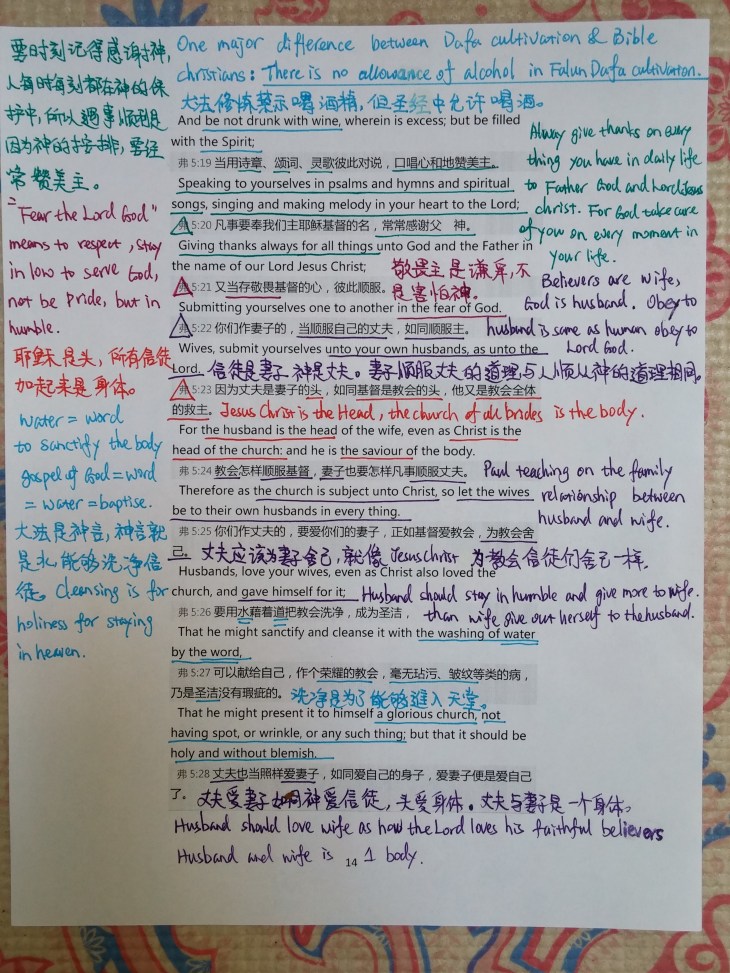 One major difference between Dafa cultivation & Bible
christians: There is no allowance of alcohol in Falun Dafa cultivation.
大法修炼禁示喝酒精，但圣经中允许喝酒。
要时刻记得感谢神，
人每时每刻都在神的保
护中，所以遇事顺利是
因为神的安排，要经
常赞美主。
"Fear the Lord God"
means to respect, stay
in low to serve God,
not be pride, but in
humble.
耶稣是头，所有信徒
加起来是身体。
water = word
to sanctify the body
gospel of God = word
= water = baptise.
大法是神言，神言就
是水，能够洗净信
徒。Cleansing is for
holiness for staying
in heaven.
And be not drunk with wine, wherein is excess; but be filled
with the Spirit;
弗 5:19 当用诗章、颂词、灵歌彼此对说，口唱心和地赞美主。
Speaking to yourselves in psalms and hymns and spiritual
songs, singing and making melody in your heart to the Lord;
弗 5:20 凡事要奉我们主耶稣基督的名，常常感谢父　神。
Giving thanks always for all things unto God and the Father in
the name of our Lord Jesus Christ;
Alway give thanks on every
thing you have in daily life
to Father God and Lord Jesus
christ. For God take care
of you on every moment in
your life.
敬畏主是谦卑，不
是害怕神。
弗 5:21 又当存敬畏基督的心，彼此顺服。
Submitting yourselves one to another in the fear of God.
Believers are wife,
God is husband. Obey to
husband is same as human obey to
Lord God.
弗 5:22 你们作妻子的，当顺服自己的丈夫，如同顺服主。
Wives, submit yourselves unto your own husbands, as unto the
Lord.
信徒是妻子，神是丈夫。妻子顺服丈夫的道理与人顺从神的道理相同。
弗 5:23 因为丈夫是妻子的头，如同基督是教会的头，他又是教会全体
的救主。
Jesus Christ is the Head, the church of all brides is the body.
For the husband is the head of the wife, even as Christ is the
head of the church: and he is the saviour of the body.
弗 5:24 教会怎样顺服基督，妻子也要怎样凡事顺服丈夫。
Therefore as the church is subject unto Christ, so let the wives
be to their own husbands in every thing.
Paul teaching on the family
relationship between
husband and wife.
弗 5:25 你们作丈夫的，要爱你们的妻子，正如基督爱教会，为教会舍
己。
丈夫应该为妻子舍己，就像 Jesus Christ 为教会信徒们舍己一样。
Husbands, love your wives, even as Christ also loved the
church, and gave himself for it;
Husband should stay in humble and give more to wife.
than wife give out herself to the husband.
弗 5:26 要用水藉着道把教会洗净，成为圣洁，
That he might sanctify and cleanse it with the washing of water
by the word,
弗 5:27 可以献给自己，作个荣耀的教会，毫无玷污、皱纹等类的病，
乃是圣洁没有瑕疵的。
洗净是为了能够進入天堂。
That he might present it to himself a glorious church, not
having spot, or wrinkle, or any such thing; but that it should be
holy and without blemish.
弗 5:28 丈夫也当照样爱妻子，如同爱自己的身子，爱妻子便是爱自己
了。
丈夫爱妻子如同神爱信徒，头爱身体。丈夫与妻子是一个身体。
Husband should love wife as how the Lord loves his faithful believers
Husband and wife is 1 body.
14